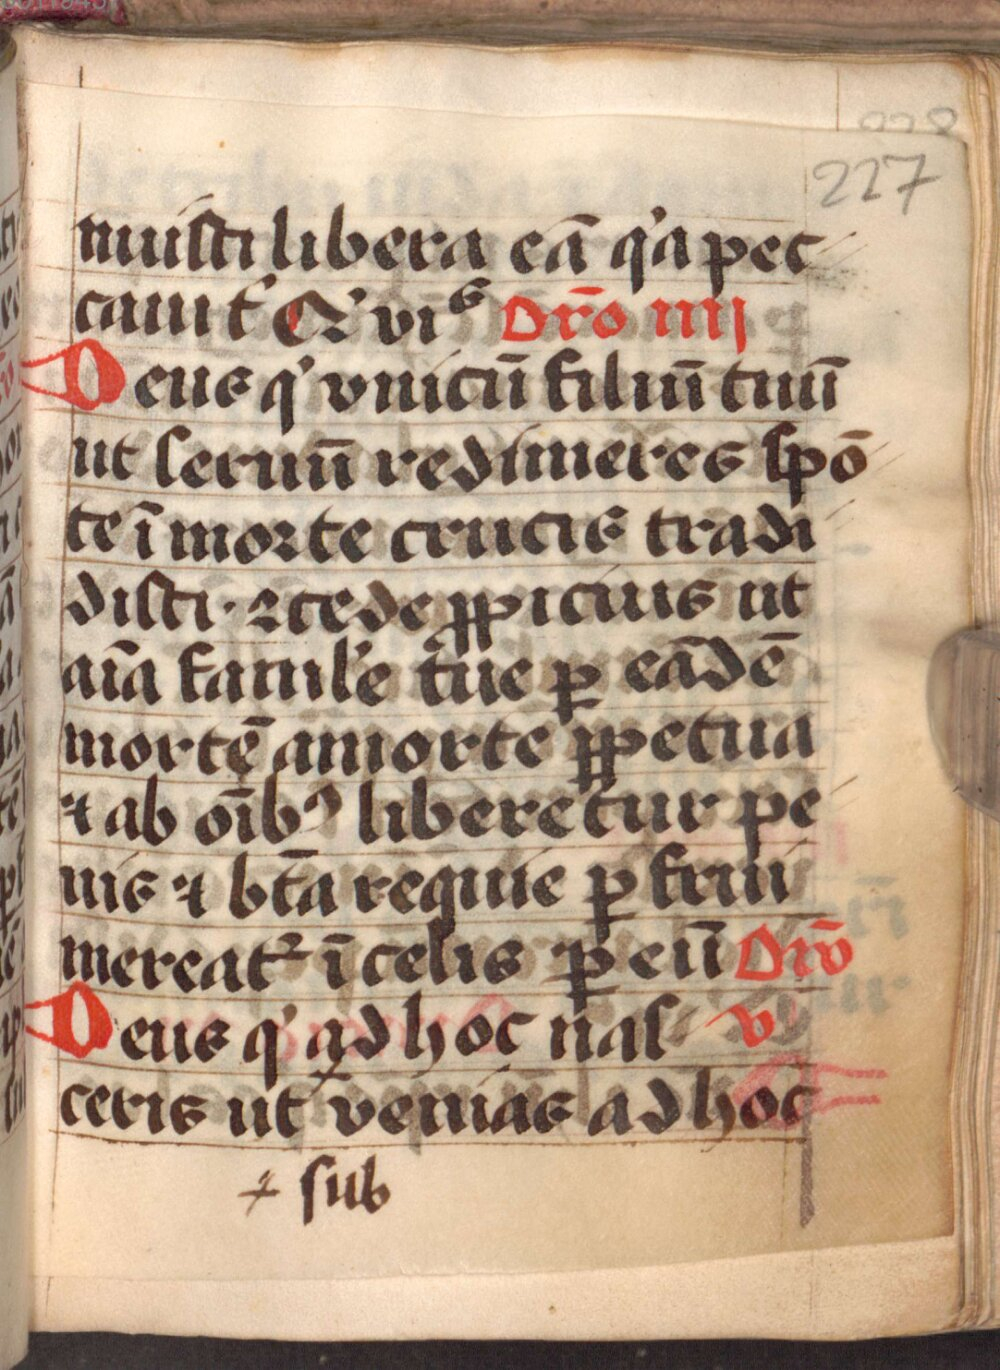 227
muisti libera eā qͥa pec
cauit Qͥ viꝰ Orō iiij
Deus qͥ vnicū filiū tuū
ut seruū redimeres spō
te ī morte crucis tradi
disti · ꝯcede ꝓpicius ut
aīa famule tue ꝑ eādē
mortē a morte ꝑpetua
⁊ ab oībꝰ liberetur pe
nis ⁊ btā requie ꝑ frui
mereatᷣ ī celis ꝑ eū Orō
Deus qͥ ad hoc nas v
ceris ut venias ad hoc
sub